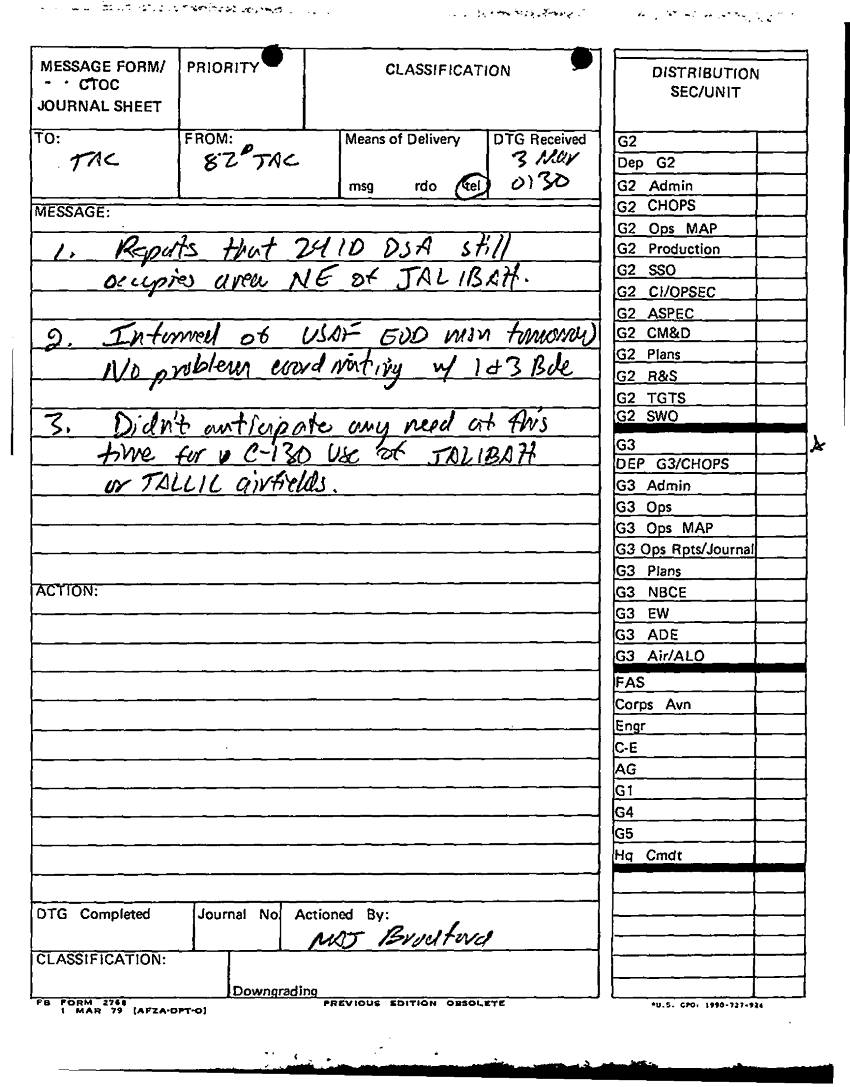 MESSAGE FORM/
CTOC
JOURNAL SHEET
PRIORITY
CLASSIFICATION
TO:
TAC
FROM:
82D TAC
Means of Delivery
msg rdo tel
DTG Received
3 Mar
0130
MESSAGE:
1. Reports that 24 ID DSA still
occupies area NE of JALIBAH.
2. Informed of USAF EOD msn tomorrow
No problem coordinating w/ 1 & 3 Bde
3. Didn't anticipate any need at this
time for C-130 use of JALIBAH
or TALLIL airfields.
ACTION:
DTG Completed
Journal No.
Actioned By:
MAJ Bradford
CLASSIFICATION:
Downgrading
FB FORM 2768
1 MAR 79 (AFZA-DPT-O)
PREVIOUS EDITION OBSOLETE
DISTRIBUTION
SEC/UNIT
G2
Dep G2
G2 Admin
G2 CHOPS
G2 Ops MAP
G2 Production
G2 SSO
G2 CI/OPSEC
G2 ASPEC
G2 CM&D
G2 Plans
G2 R&S
G2 TGTS
G2 SWO
G3
DEP G3/CHOPS
G3 Admin
G3 Ops
G3 Ops MAP
G3 Ops Rpts/Journal
G3 Plans
G3 NBCE
G3 EW
G3 ADE
G3 Air/ALO
FAS
Corps Avn
Engr
C-E
AG
G1
G4
G5
Hq Cmdt
*U.S. GPO: 1990-727-926